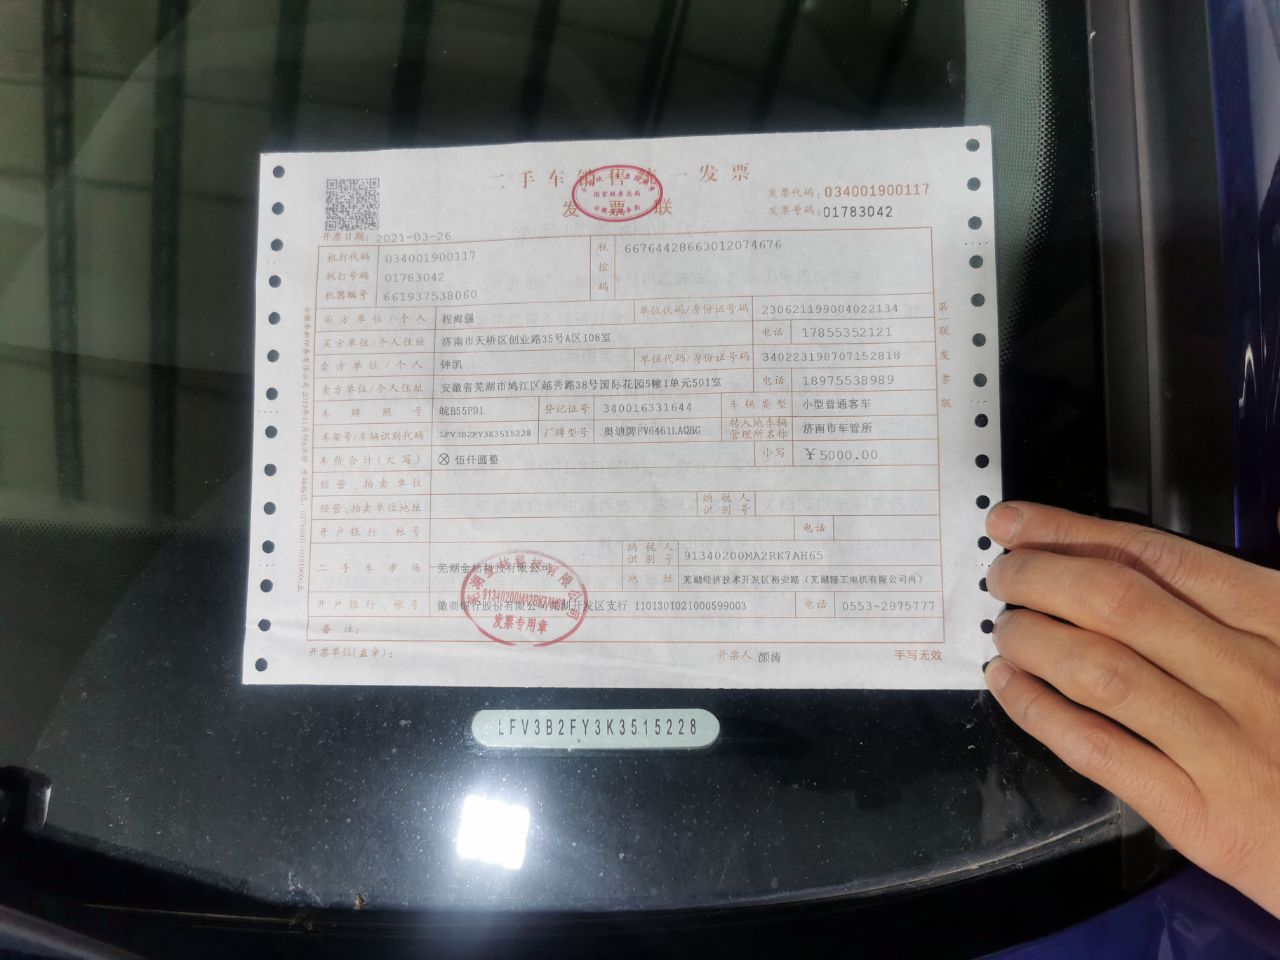 二手车销售统一发票
发票联
发票代码：034001900117
发票号码：01783042
开票日期：2021-03-26
机打代码 034001900117
机打号码 01783042
机器编号 661937538060
税控码 66764428663012074676
买方单位/个人 程海强 单位代码/身份证号码 230621199004022134
买方单位/个人住址 济南市天桥区创业路35号A区108室 电话 17855352121
卖方单位/个人 钟凯 单位代码/身份证号码 340223198707152818
卖方单位/个人住址 安徽省芜湖市鸠江区越秀路38号国际花园5幢1单元501室 电话 18975538989
车牌照号 皖B55P01 登记证号 340016331644 车辆类型 小型普通客车
车架号/车辆识别代码 LFV3B2FY3K3515228 厂牌型号 奥迪牌FV6461LAQBG 转入地车辆管理所名称 济南市车管所
车价合计(大写) ⊗ 伍仟圆整 小写 ￥5000.00
经营、拍卖单位
经营、拍卖单位地址 纳税人识别号
开户银行、帐号 电话
二手车市场 芜湖金 科技有限公司 纳税人识别号 91340200MA2RK7AH65
地址 芜湖经济技术开发区裕安路（芜湖精工电机有限公司内）
开户银行、帐号 徽商银行股份有限公司芜湖开发区支行 1101301021000599003 电话 0553-2875777
备注：
开票单位(盖章)： 开票人 颜涛 手写无效
第一联 发票联
国家税务总局
91340200MA2RK7AH65
发票专用章
LFV3B2FY3K3515228